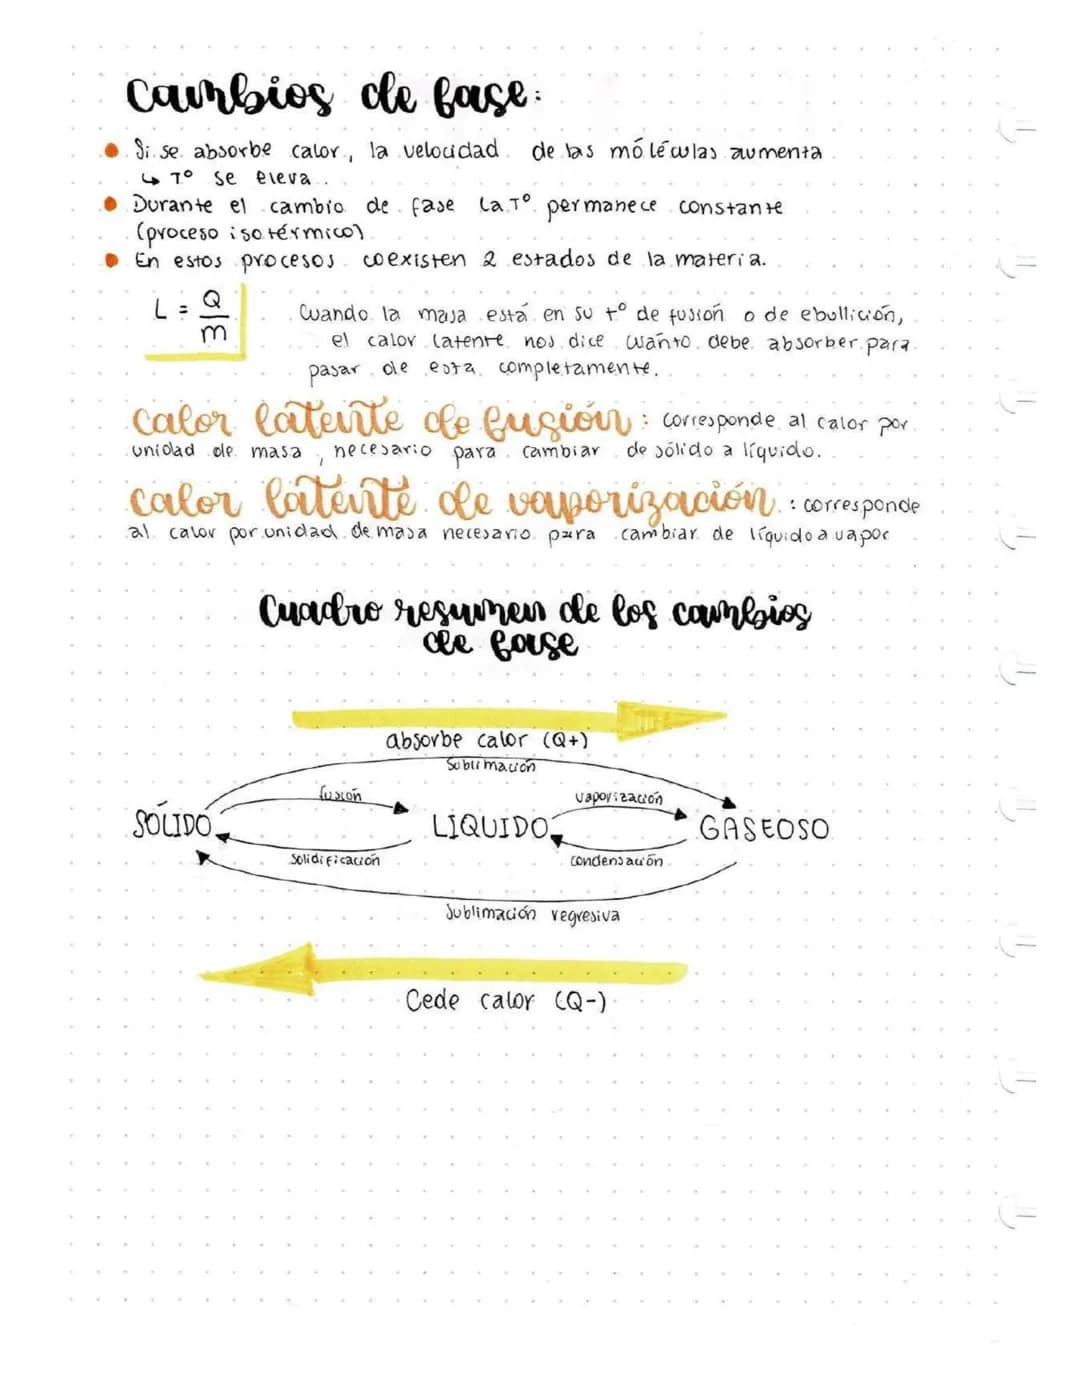 Cambios de fase:
Si se absorbe calor, la velocidad de las móléculas aumenta
↳ Tº se eleva..
Durante el cambio de fase la Tº permanece constante
(proceso isotérmico)
En estos procesos coexisten 2 estados de la materia.
L = Q/m
Cuando la masa está en su tº de fusión o de ebullición,
el calor latente nos dice cuánto debe absorber para
pasar de esta completamente.
Calor latente de fusión : corresponde al calor por
unidad de masa, necesario para cambiar de sólido a líquido.
Calor latente de vaporización : corresponde
al calor por unidad de masa necesario para cambiar de líquido a vapor
Cuadro resumen de los cambios
de fase
absorbe calor (Q+)
Sublimación
fusión
vaporización
SÓLIDO
LIQUIDO
GASEOSO
Solidificación
condensación
Sublimación regresiva
Cede calor (Q-)